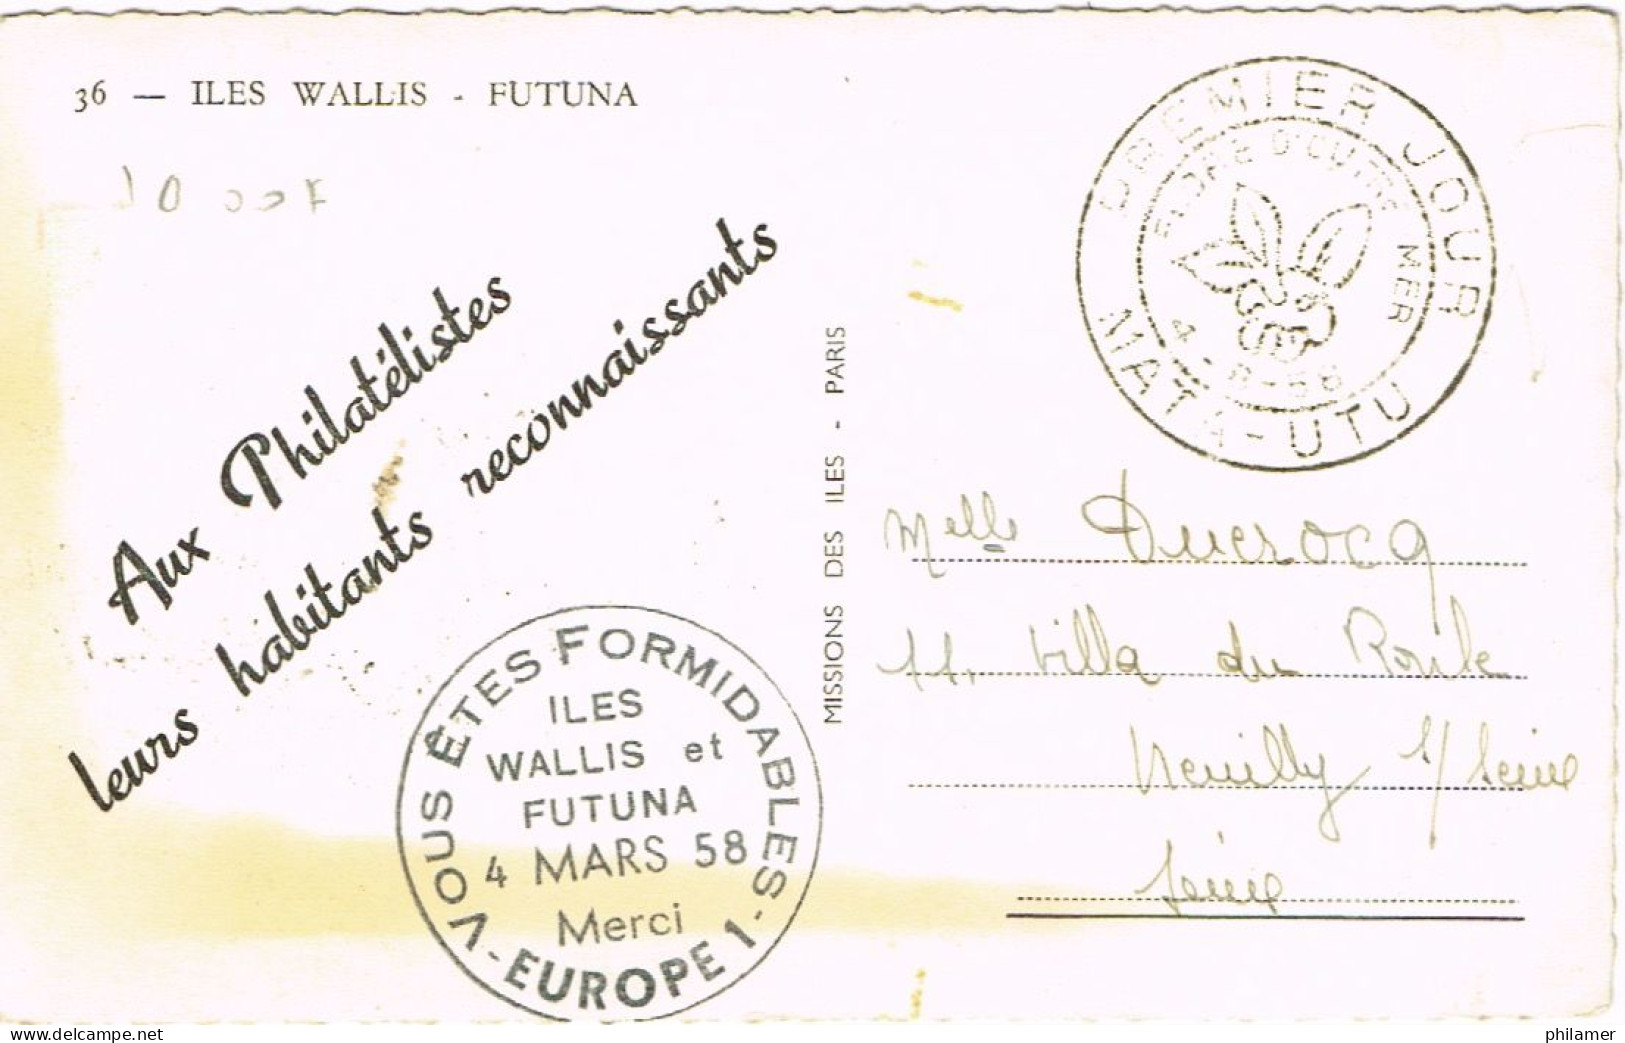 36 — ILES WALLIS - FUTUNA
Aux Philatélistes
leurs habitants reconnaissants
VOUS ÊTES FORMIDABLES - EUROPE 1 -
ILES
WALLIS et
FUTUNA
4 MARS 58
Merci
MISSIONS DES ILES - PARIS
PREMIER JOUR
FLORE D'OUTRE MER
MATA-UTU
Melle Ducrocq
11, Villa du Roule
Neuilly s/ Seine
Seine
https://www.delcampe.net
philamer